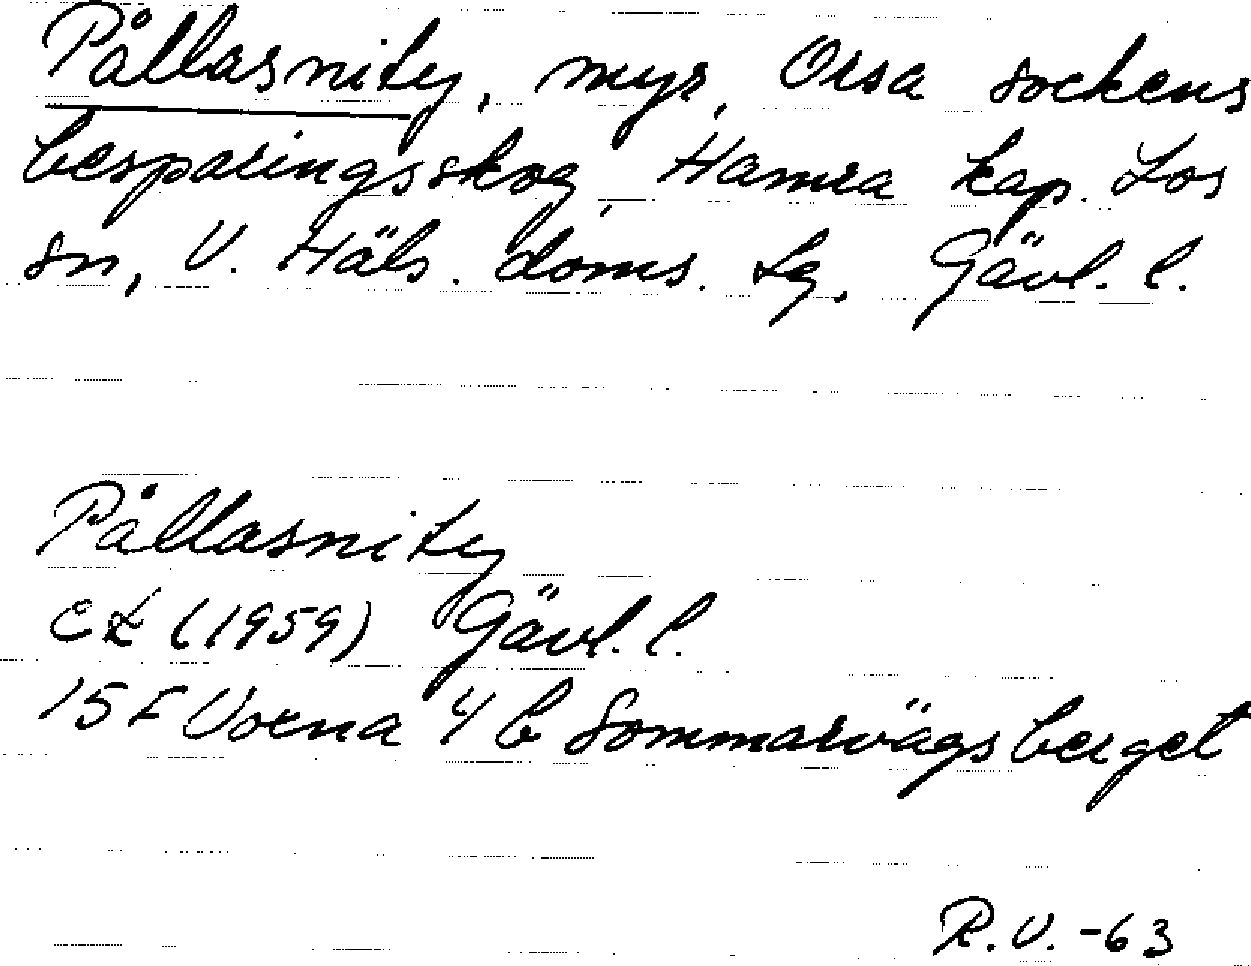 Pållasnity, myr, Orsa sockens
besparingsskog, Hamra kap. Los
sn, V. Häls. doms. lg, Gävl. l.
Pållasnity
ek (1959) Gävl. l.
15 F Voxna 4 b Sommarvägsberget
R.V.-63